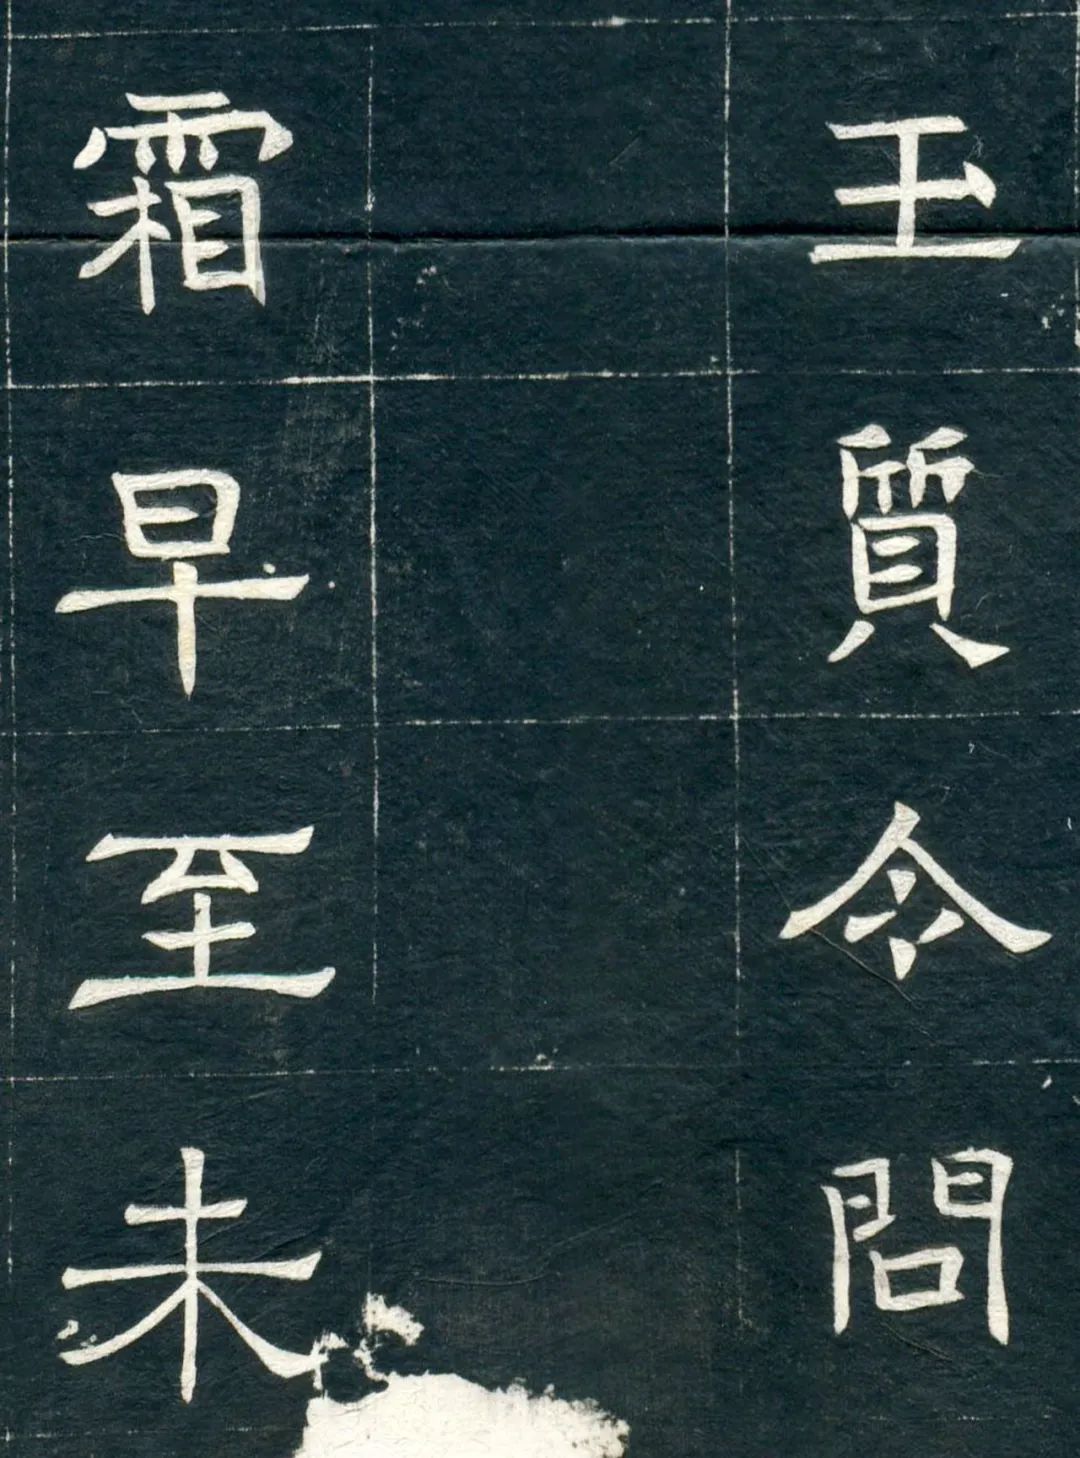 玉質令問
霜早至未